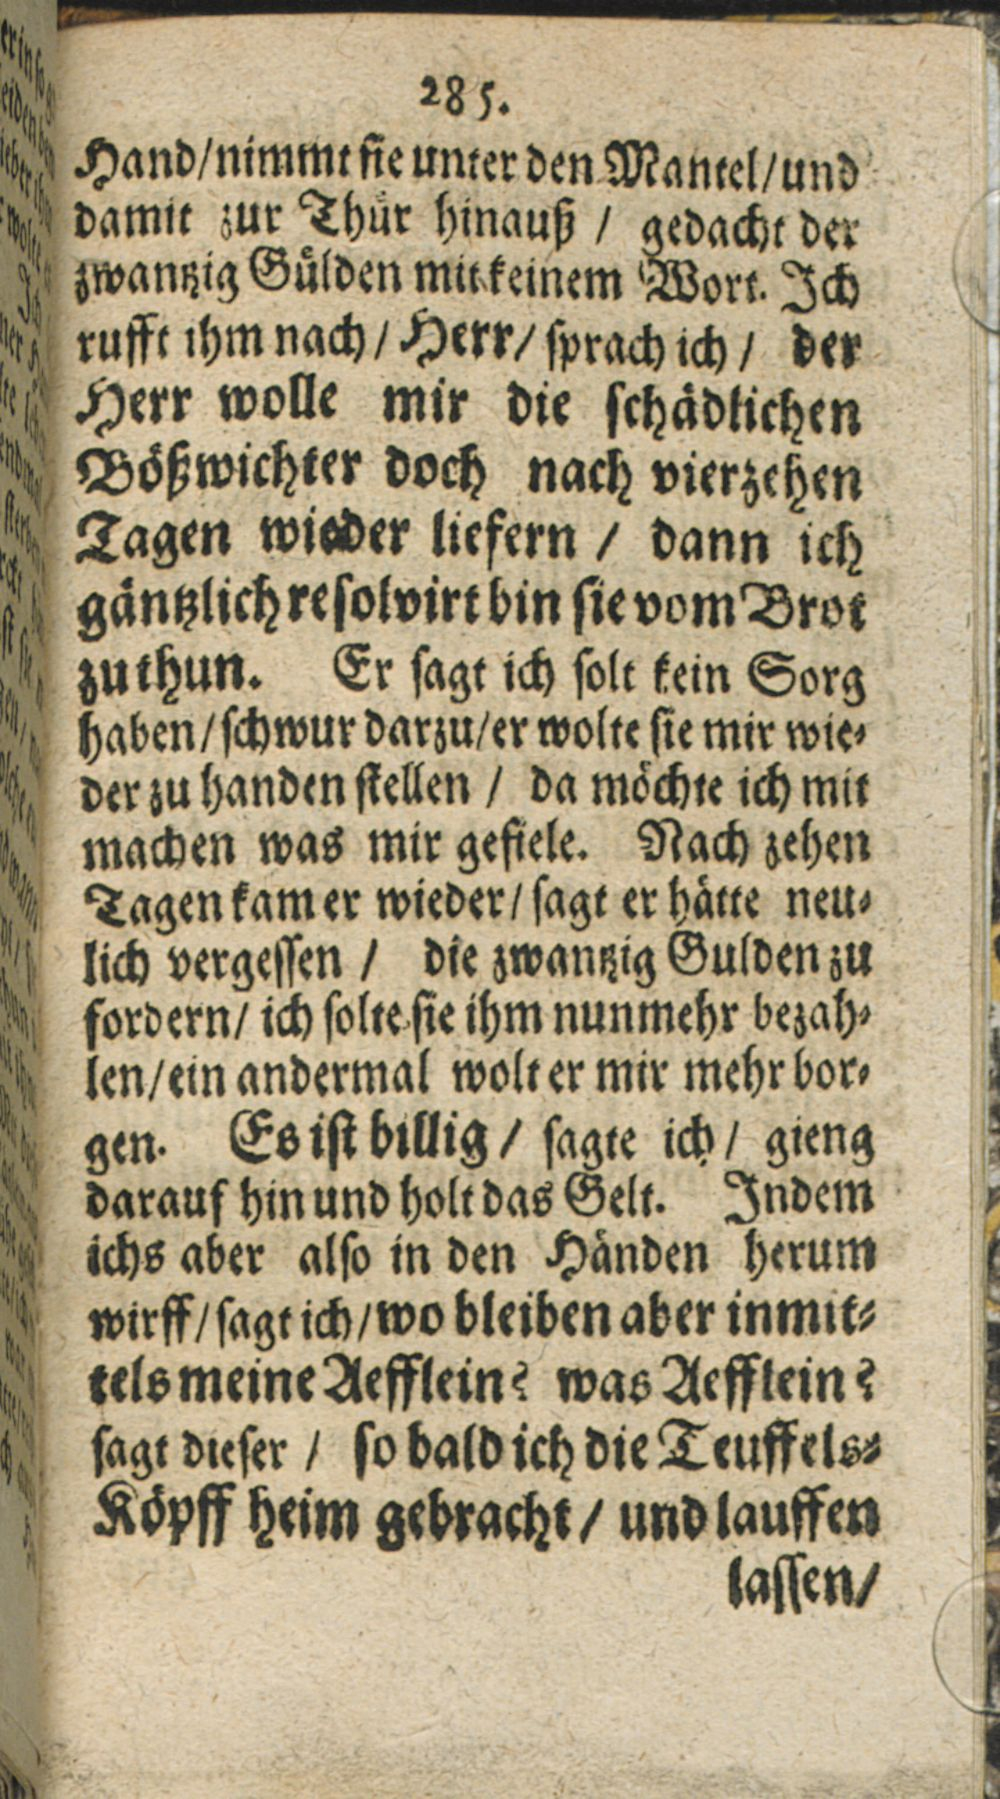 285.
Hand/nimmt sie unter den Mantel/und
damit zur Thür hinauß / gedacht der
zwantzig Gülden mit keinem Wort. Ich
rufft ihm nach / Herr / sprach ich / der
Herr wolle mir die schädlichen
Bößwichter doch nach vierzehen
Tagen wieder liefern / dann ich
gäntzlich resolvirt bin sie vom Brot
zu thun. Er sagt ich solt kein Sorg
haben / schwur darzu/er wolte sie mir wie-
der zu handen stellen / da möchte ich mit
machen was mir gefiele. Nach zehen
Tagen kam er wieder / sagt er hätte neu-
lich vergessen / die zwantzig Gulden zu
fordern/ ich solte sie ihm nunmehr bezah-
len/ein andermal wolt er mir mehr bor-
gen. Es ist billig / sagte ich / gieng
darauf hin und holt das Gelt. Indem
ichs aber also in den Händen herum
wirff / sagt ich / wo bleiben aber inmit-
tels meine Aefflein? was Aefflein?
sagt dieser / so bald ich die Teuffels-
Köpff heim gebracht / und lauffen
lassen/